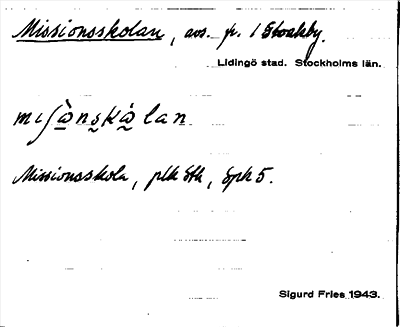 Missionsskolan, avs. fr. 1 Stockby.
Lidingö stad. Stockholms län.
mıʃὰnskὰlan
Missionsskola, plk Sth, Spk 5.
Sigurd Fries 1943.